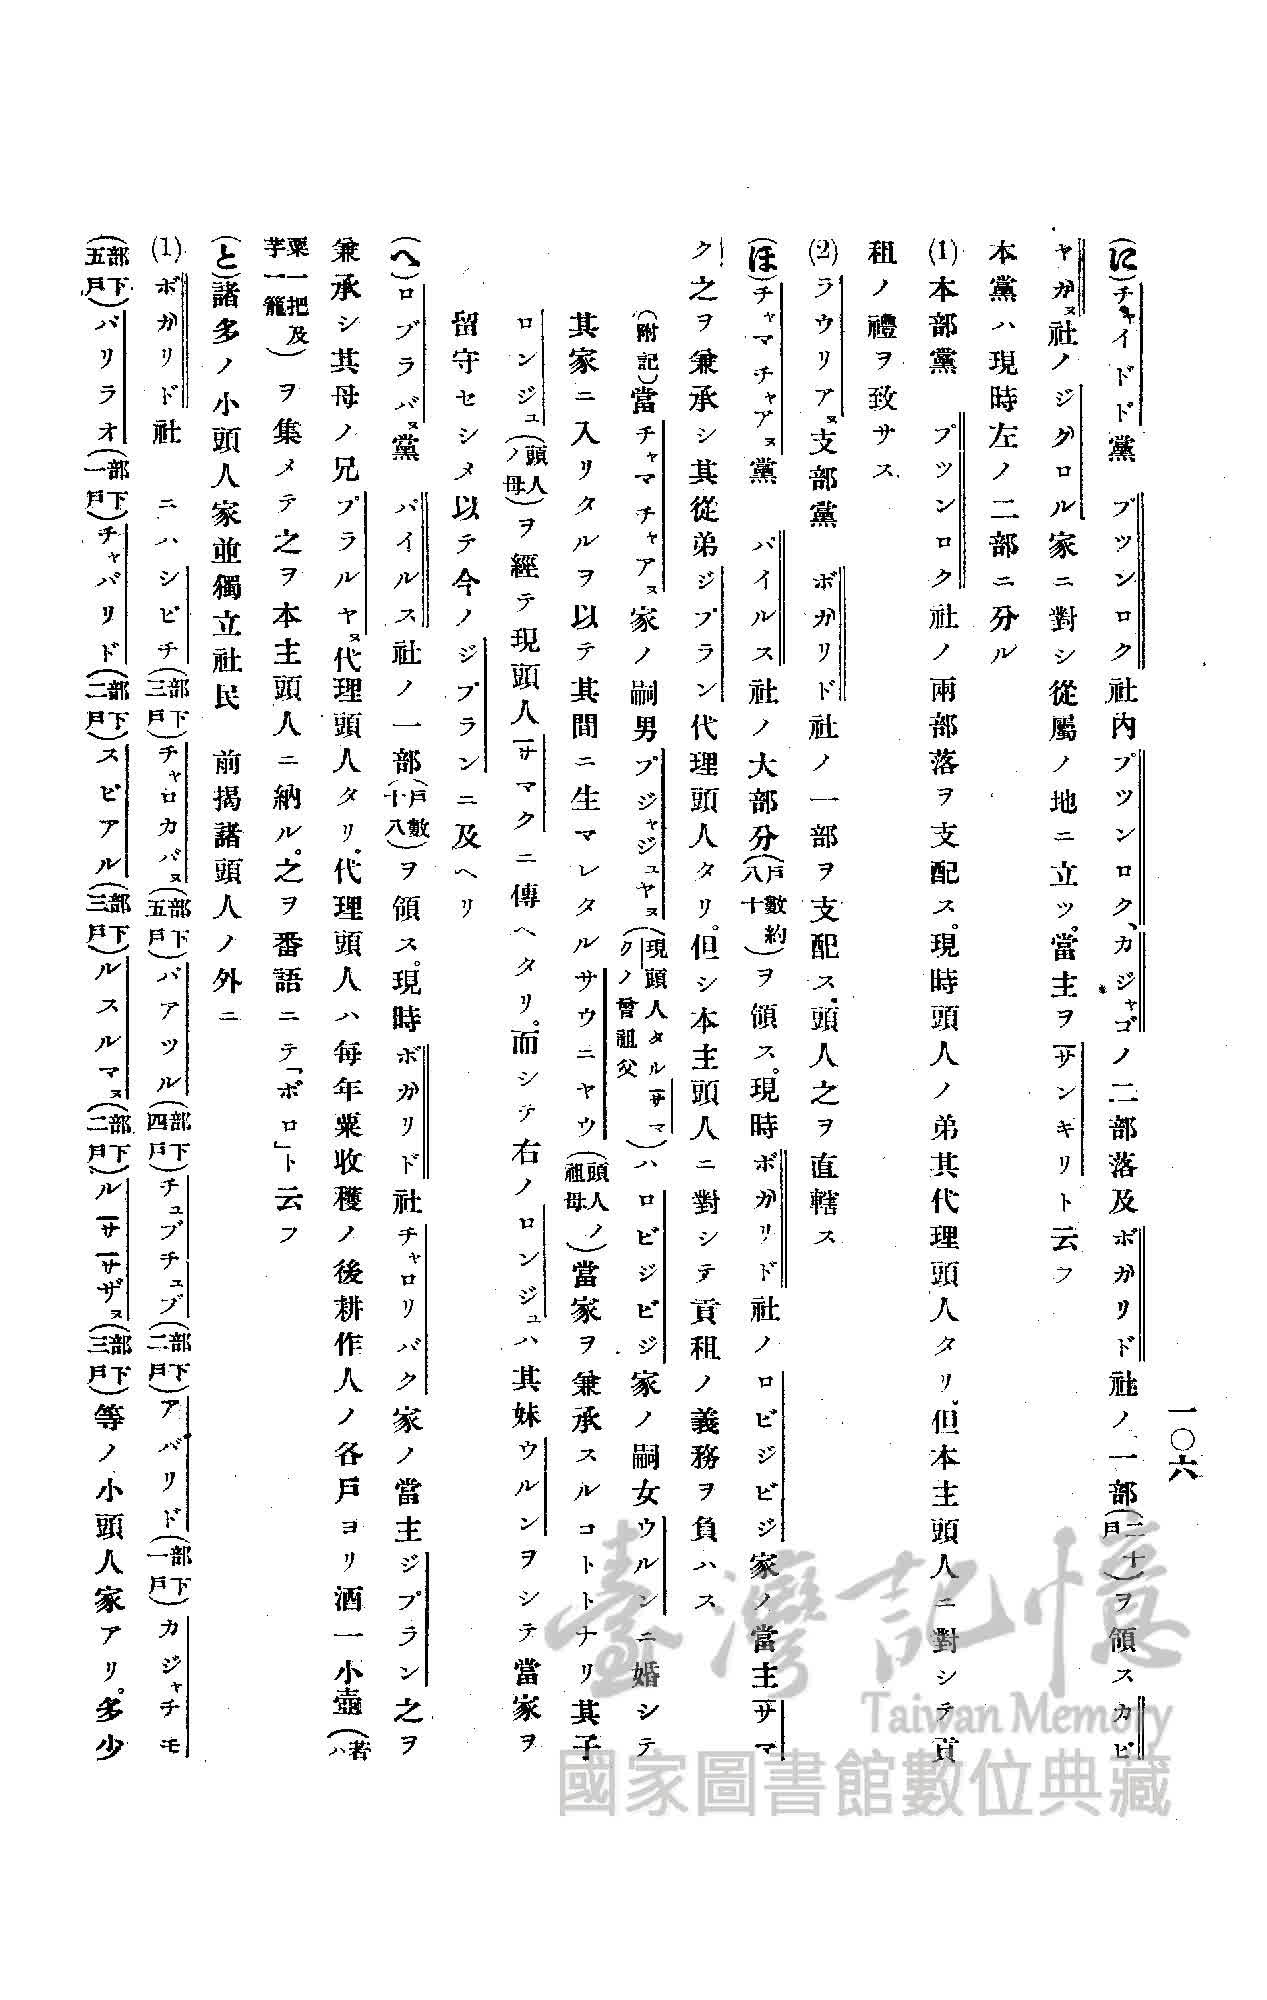 一〇六
(に)チャイドド黨　ブツンロク社内ブツンロク、カジャゴノ二部落及ボガリド社ノ一部(二十戸)ヲ領スカピ
ヤガヌ社ノジグロル家ニ對シ從屬ノ地ニ立ツ。當主ヲサンキリト云フ
本黨ハ現時左ノ二部ニ分ル
(1)本部黨　ブツンロク社ノ兩部落ヲ支配ス。現時頭人ノ弟其代理頭人タリ。但本主頭人ニ對シテ貢
租ノ禮ヲ致サス
(2)ラウリアヌ支部黨　ボガリド社ノ一部ヲ支配ス、頭人之ヲ直轄ス
(ほ)チャマチャアヌ黨　パイルス社ノ大部分(戸數約八十)ヲ領ス。現時ボガリド社ノロビジビジ家ノ當主サマ
ク之ヲ兼承シ其從弟ジプラン代理頭人タリ。但シ本主頭人ニ對シテ貢租ノ義務ヲ負ハス
(附記)當チャマチャアヌ家ノ嗣男プジャジュヤヌ(現頭人タルサマクノ曾祖父)ハロビジビジ家ノ嗣女ウルンニ婚シテ
其家ニ入リタルヲ以テ其間ニ生マレタルサウニヤウ(頭人ノ祖母)當家ヲ兼承スルコトトナリ其子
ロンジュ(頭人ノ母)ヲ經テ現頭人サマクニ傳ヘタリ。而シテ右ノロンジュハ其妹ウルンヲシテ當家ヲ
留守セシメ以テ今ノジプランニ及ヘリ
(へ)ロブラバヌ黨　パイルス社ノ一部(戸數十八)ヲ領ス。現時ボガリド社チャロリバク家ノ當主ジプラン之ヲ
兼承シ其母ノ兄プラルヤヌ代理頭人タリ。代理頭人ハ毎年粟收穫ノ後耕作人ノ各戸ヨリ酒一小壺(若ハ
粟一把及芋一籠)ヲ集メテ之ヲ本主頭人ニ納ル。之ヲ番語ニテ「ボロ」ト云フ
(と)諸多ノ小頭人家並獨立社民　前揭諸頭人ノ外ニ
(1)ボガリド社　ニハシピチ(部下三戸)チャロカバヌ(部下五戸)パアツル(部下四戸)チュブチュブ(部下二戸)アバリド(部下一戸)カジャチモ
(部下五戸)バリラオ(部下一戸)チャバリド(部下二戸)スピアル(部下三戸)ルスルマヌ(部下二戸)ルササザヌ(部下三戸)等ノ小頭人家アリ。多少
臺灣記憶
Taiwan Memory
國家圖書館數位典藏